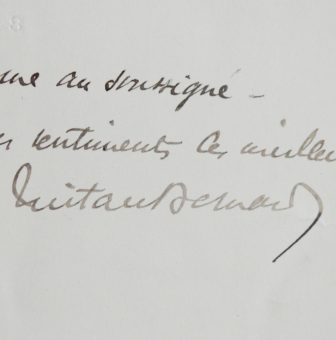 au soussigné -
sentiments les meilleu
Tristan Bernard